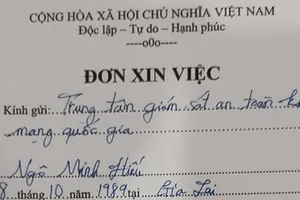 CỘNG HÒA XÃ HỘI CHỦ NGHĨA VIỆT NAM
Độc lập – Tự do – Hạnh phúc
----o0o----
ĐƠN XIN VIỆC
Kính gửi: Trung tâm giám sát an toàn
mạng quốc gia
Ngô Minh Hiếu
8 tháng 10 năm 1989 tại Gia Lai